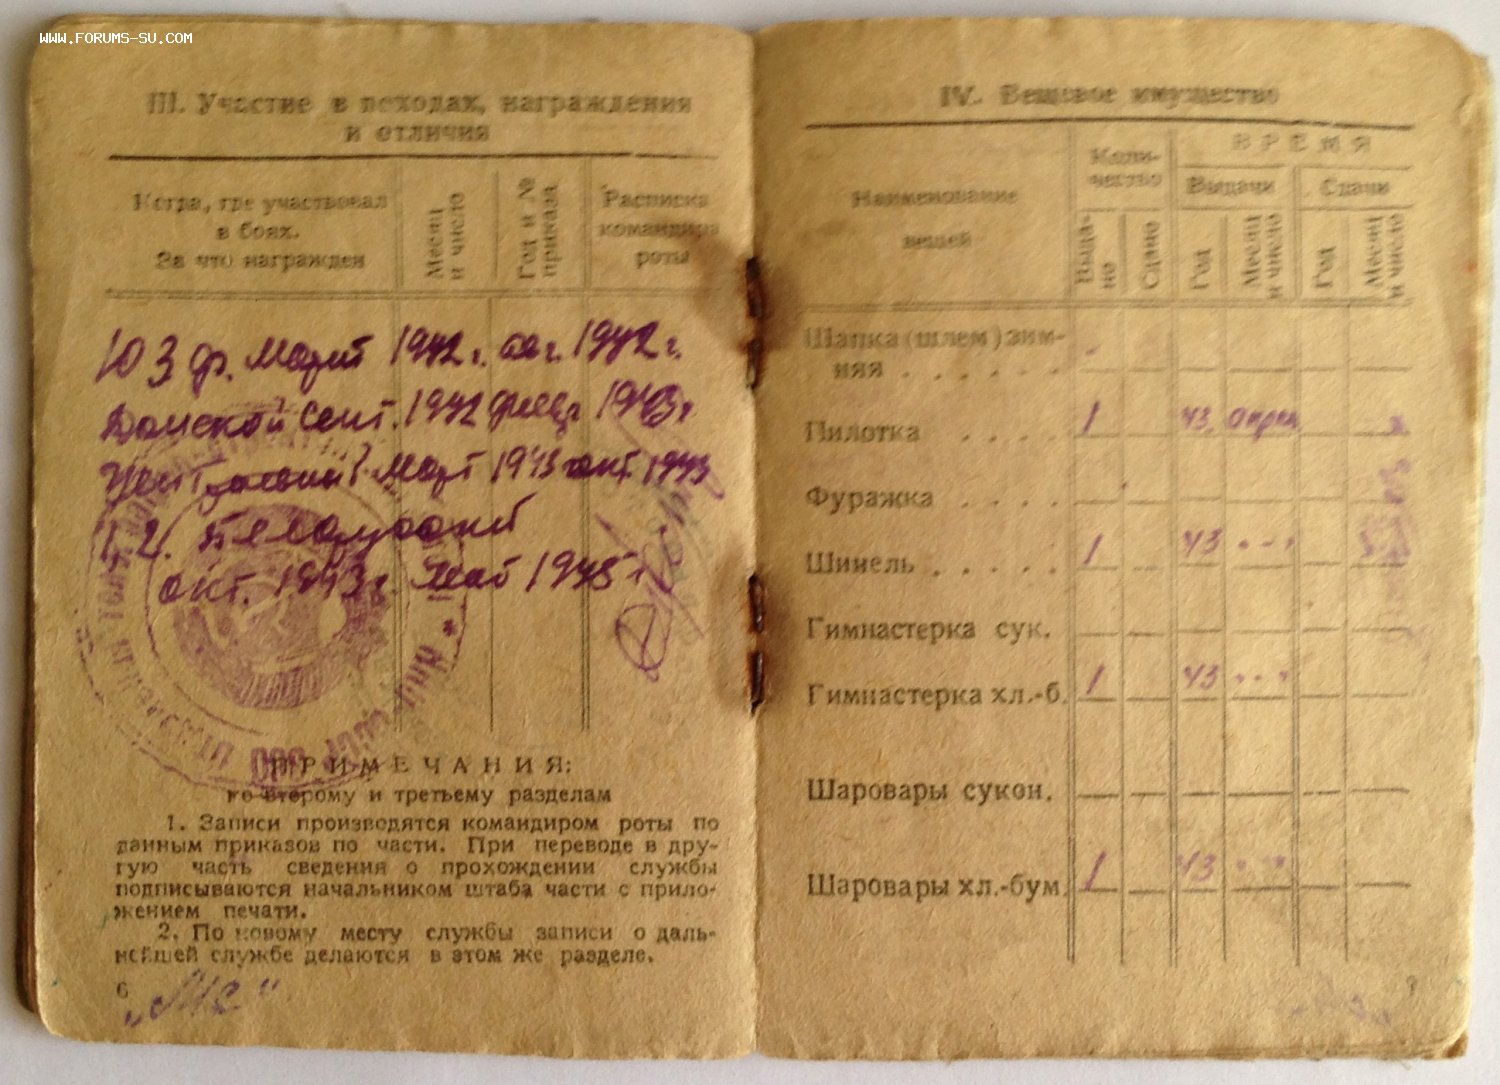 WWW.FORUMS-SU.COM
III. Участие в походах, награждения
и отличия
Когда, где участвовал
в боях.
За что награжден
Месяц
и число
Год и №
приказа
Расписка
командира
роты
Ю З фр. Март 1942 г. авг. 1942 г.
Донской Сент. 1942 февр 1943 г
Центральный Март 1943 окт. 1943
1й Белорусский
окт. 1943 г. Май 1945 г
ПРИМЕЧАНИЯ:
ко второму и третьему разделам
1. Записи производятся командиром роты по
данным приказов по части. При переводе в дру-
гую часть сведения о прохождении службы
подписываются начальником штаба части с прило-
жением печати.
2. По новому месту службы записи о даль-
нейшей службе делаются в этом же разделе.
6
IV. Вещевое имущество
Наименование
вещей
Коли-
чество
ВРЕМЯ
Выдачи
Сдачи
Выда-
но
Сдано
Год
Месяц
и число
Год
Месяц
и число
Шапка (шлем) зим-
няя . . . . . .
Пилотка . . . . 1 43
Фуражка . . . .
Шинель . . . . . 1 43
Гимнастерка сук.
Гимнастерка хл.-б. 1 43
Шаровары сукон.
Шаровары хл.-бум. 1 43